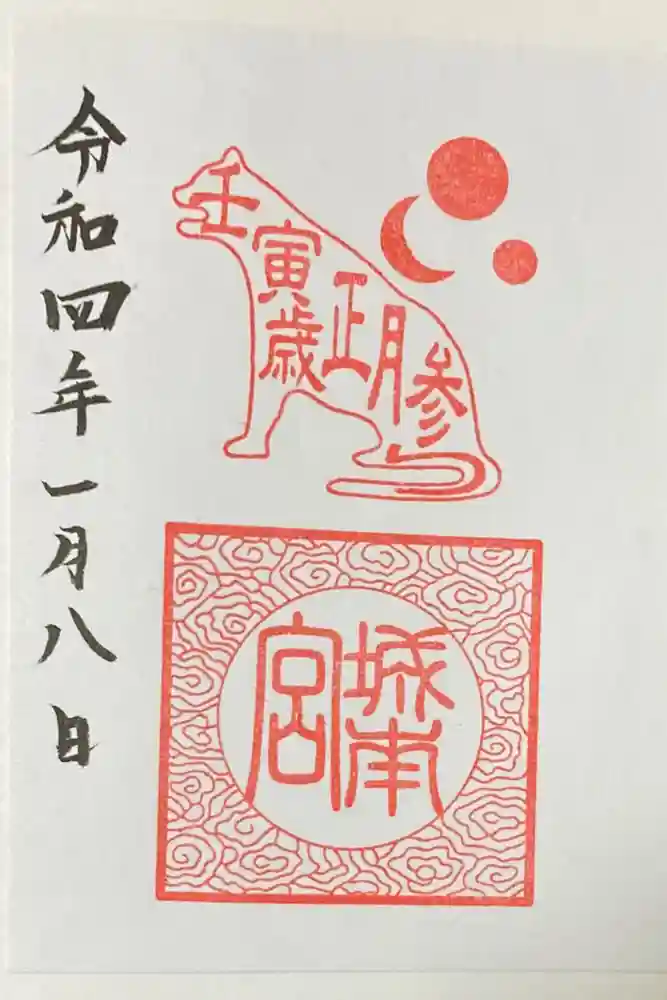 壬寅歳正月参
城南宮
令和四年一月八日